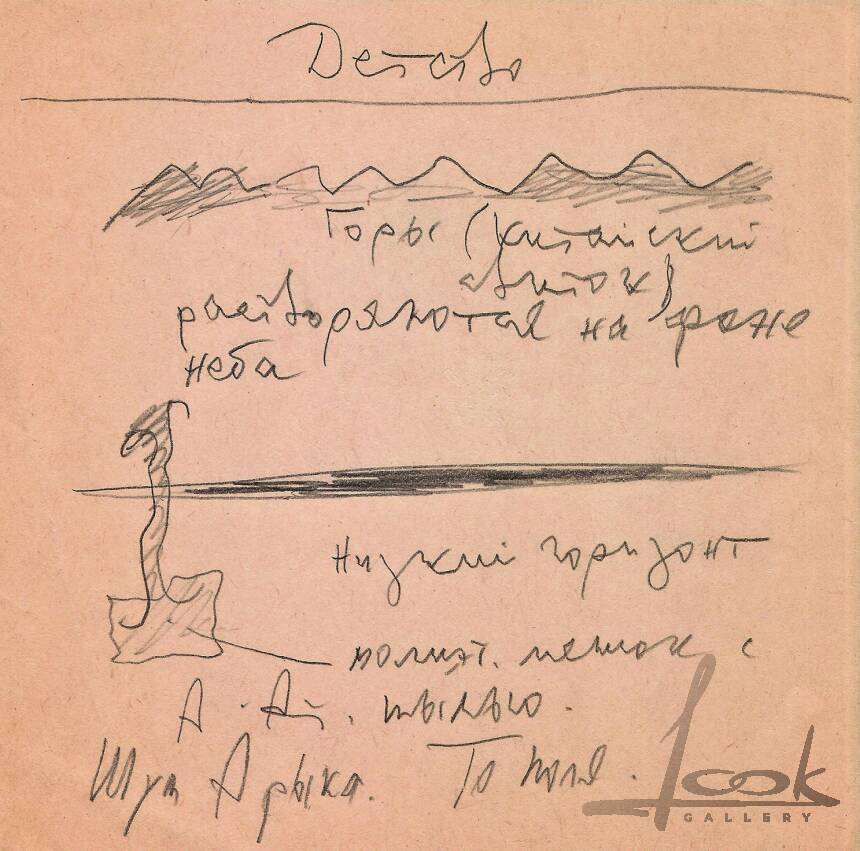 Детство
Горы (китайский
свиток)
растворяются на фоне
неба
Низкий горизонт
полиэт. мешок с
пылью.
Шум Арыка. Тополя.
look
GALLERY